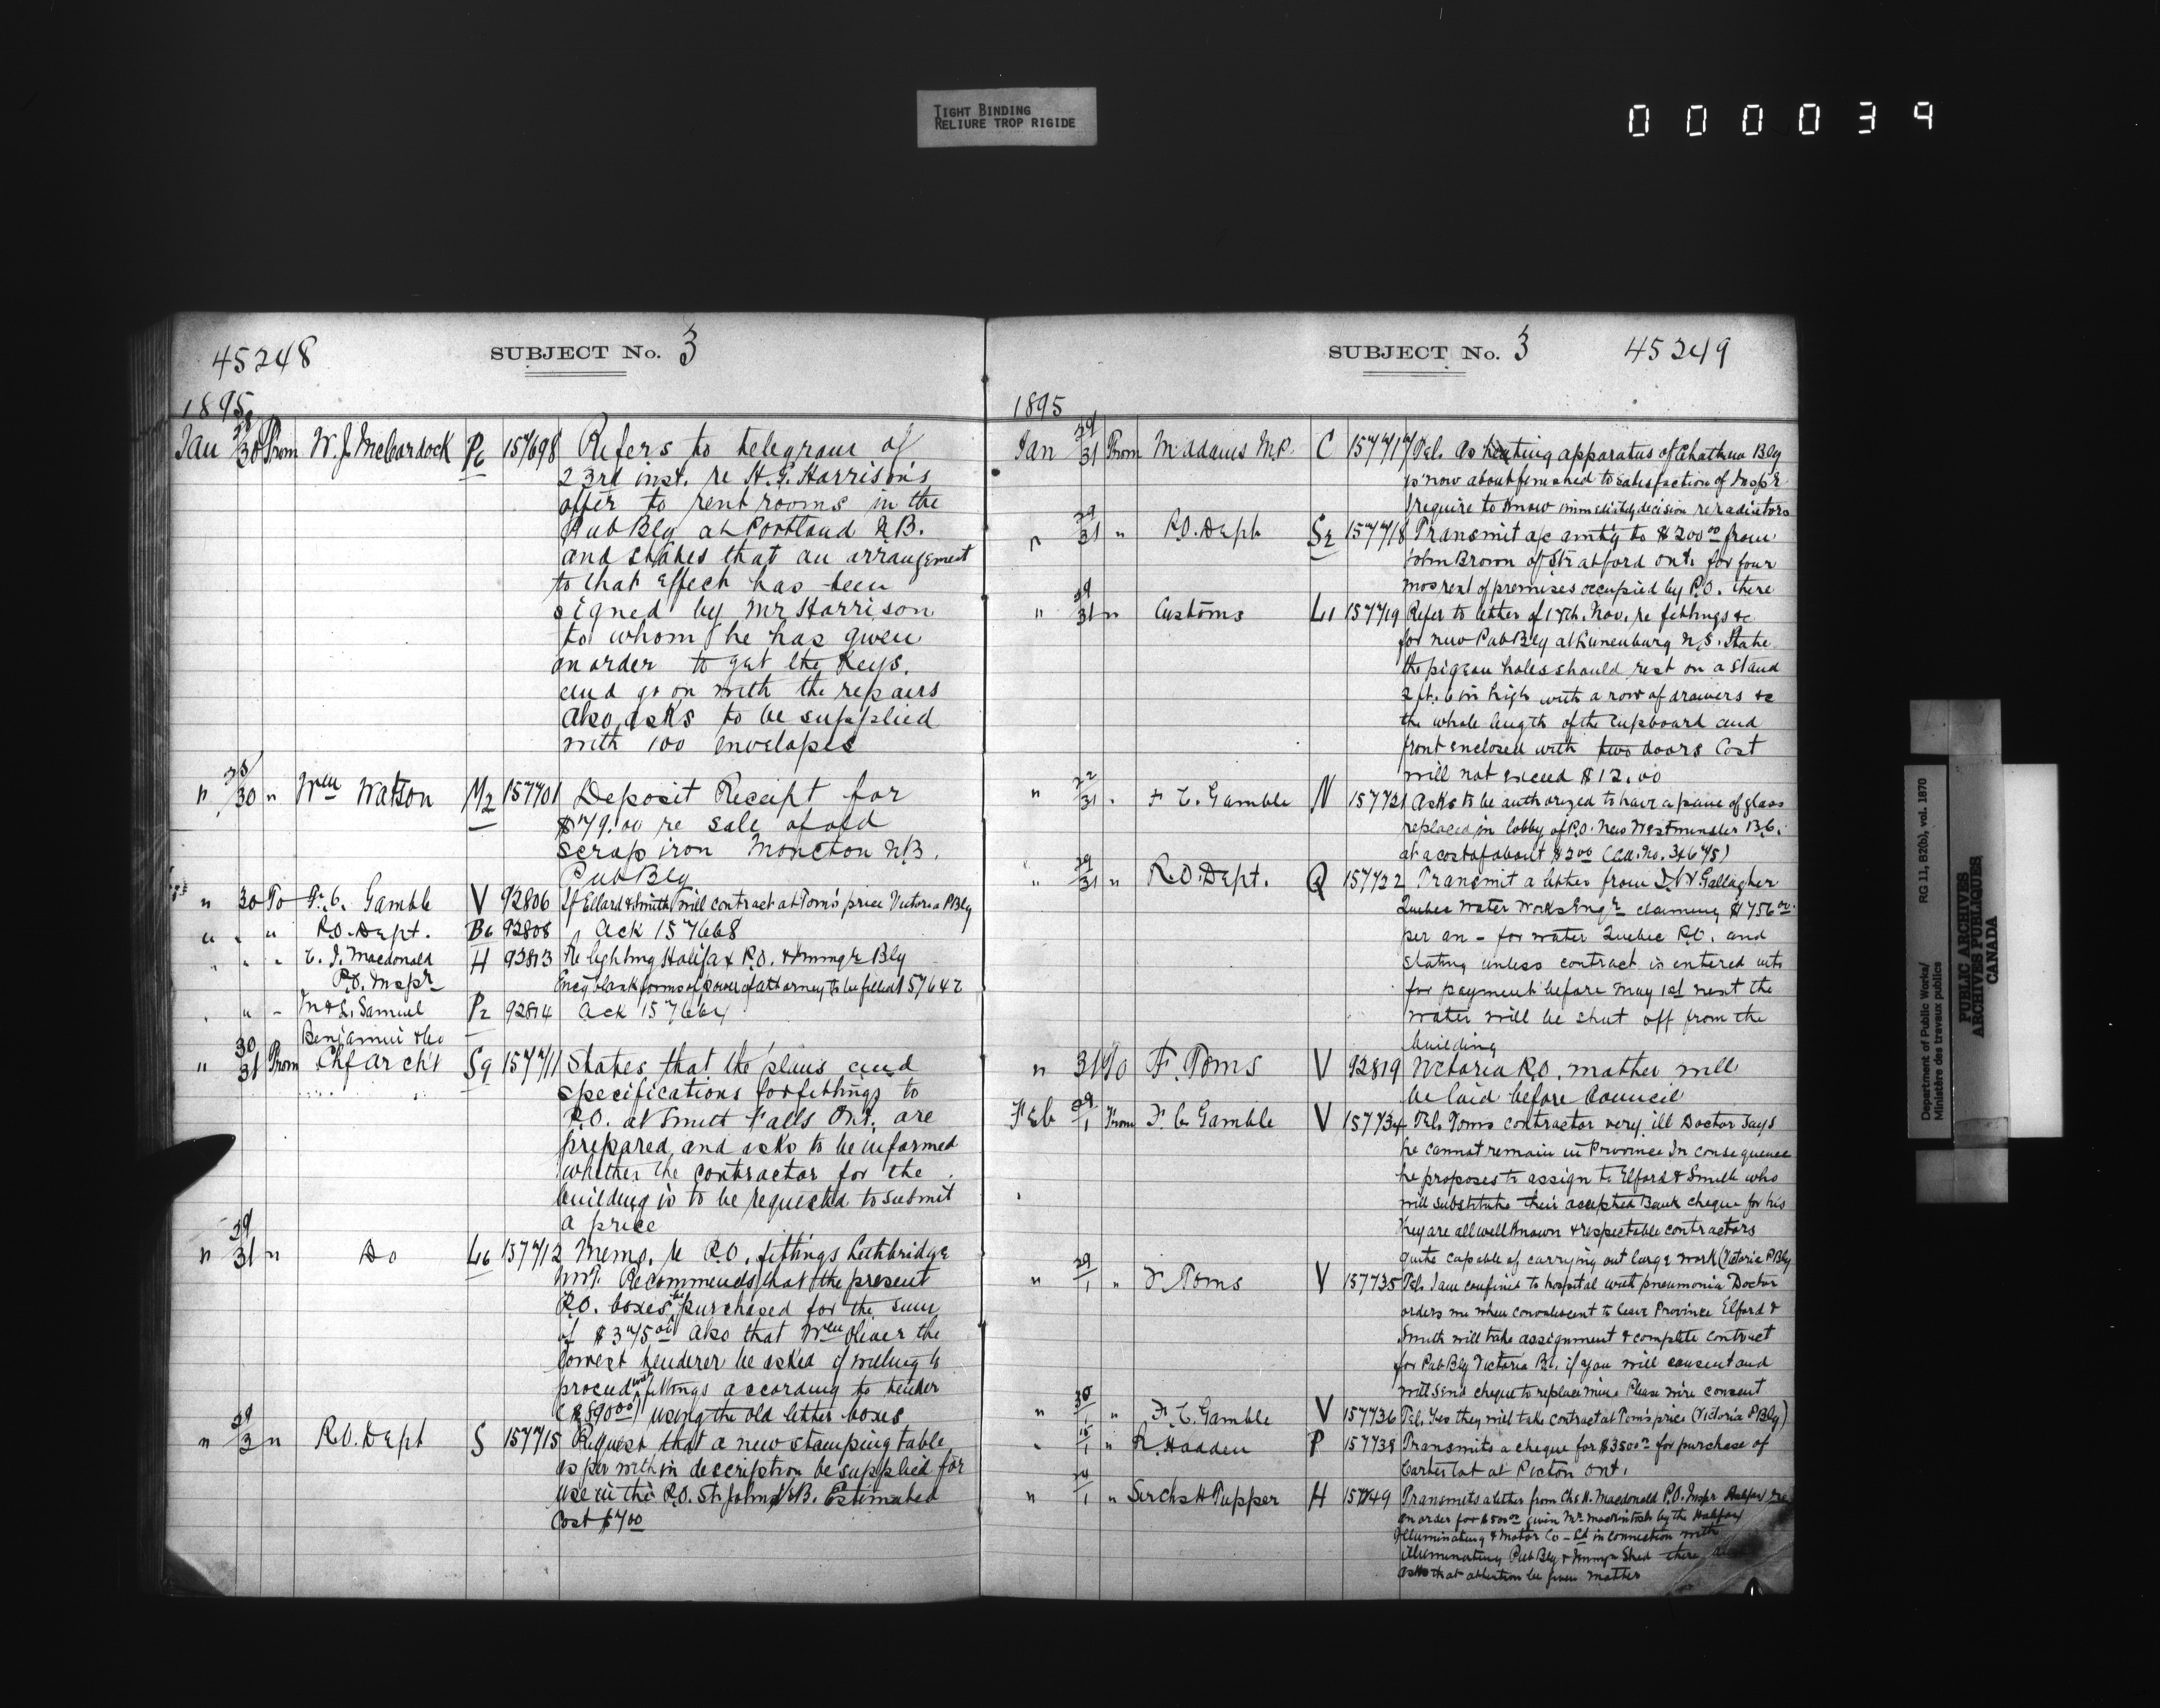 TIGHT BINDING
RELIURE TROP RIGIDE
000039
45248
SUBJECT No. 3
1895
Jan 29/30 From W. J. McCordock Pc 157698 Refers to telegram of
23rd inst. re H. E. Harrison's
offer to rent rooms in the
Pub Blg at Portland N.B.
and states that an arrangement
to that effect has been
signed by Mr Harrison
to whom he has given
an order to get the keys
and go on with the repairs
Also asks to be supplied
with 100 envelopes
" 28/30 " Wm Watson M2 157701 Deposit Receipt for
$79.00 re sale of old
scrap iron Moncton N.B.
Pub Blg
" 30 To F. C. Gamble V 92806 If Elford & Smith will contract at Tom's price Victoria P Blg
" " " P.O. Dept. B6 92808 Ack 157668
" " " C. J. Macdonald H 92813 Re lighting Halifax P.O. & Immgr Blg
P.O. Inspr Encg blank forms of power of attorney to be filled 157642
" " " M & L. Samuel P2 92814 Ack 157664
Benjamin & Co
" 30/31 From Chf Archt S9 157711 States that the plans and
specifications for fittings to
P.O. at Smith Falls Ont. are
prepared, and asks to be informed
whether the contractor for the
building is to be requested to submit
a price
" 29/31 " Do L6 157712 Memo. re P.O. fittings Lethbridge
N.W.T. Recommends that the present
P.O. boxes be purchased for the sum
of $375.00 Also that Wm Oliver the
lowest tenderer be asked if willing to
proceed with fittings according to tender
($890.00) using the old letter boxes
" 29/3 " P.O. Dept S 157715 Request that a new stamping table
as per within description be supplied for
use in the P.O. St John N.B. Estimated
Cost $7.00
SUBJECT No. 3
45249
1895
Jan 29/31 From M Adams M.P. C 157717 Tel. As heating apparatus of Chatham Blg
is now about finished to satisfaction of Inspr
I require to know immediately decision re radiators
" 29/31 " P.O. Dept S2 157718 Transmit a/c amtg to $200.00 from
John Brown of Stratford Ont. for four
mos rent of premises occupied by P.O. there
" 29/31 " Customs L1 157719 Refer to letter of 17th. Nov. re fittings &c
for new Pub Blg at Lunenburg N.S. State
the pigeon holes should rest on a stand
2 ft. 6 in high with a row of drawers &c
the whole length of the cupboard and
front enclosed with two doors Cost
will not exceed $12.00
" 22/31 " F. C. Gamble N 157721 Asks to be authorized to have a pane of glass
replaced in lobby of P.O. New Westminster B.C.
at a cost of about $2.00
" 29/31 " P.O. Dept. Q 157722 Transmit a letter from Gallagher
Quebec Water Works Engr claiming $756.00
per an - for water Quebec P.O. and
stating unless contract is entered into
for payment before May 1st next the
water will be shut off from the
building
" 31 To F. Toms V 92819 Victoria P.O. matter will
be laid before Council
Feb 29/1 From F. C. Gamble V 157734 Tel. Toms contractor very ill Doctor says
he cannot remain in Province In consequence
he proposes to assign to Elford & Smith who
will substitute their accepted Bank cheque for his
They are all well known & respectable contractors
quite capable of carrying out large work (Victoria P Blg
" 29/1 " F. Toms V 157735 Tel. I am confined to hospital with pneumonia Doctor
orders me when convalescent to leave Province Elford &
Smith will take assignment & complete contract
for Pub Blg Victoria B.C. if you will consent and
will send cheque to replace mine Please wire consent
" 30/1 " F. C. Gamble V 157736 Tel. Yes they will take contract at Tom's price (Victoria P Blg)
" 15/1 " R. Hadden P 157738 Transmits a cheque for $3500.00 for purchase of
Carter lot at Picton Ont.
" 24/1 " Sir Chs H Tupper H 157749 Transmits a letter from Chs H. Macdonald P.O. Inspr Halifax re
an order for $500.00 given Mr Mackintosh by the Halifax
Illuminating & Motor Co - Ld in connection with
illuminating Pub Blg & Immgr Shed there also
asks that attention be given matter
Department of Public Works/
Ministère des travaux publics
RG 11, B2(b), vol. 1870
PUBLIC ARCHIVES
ARCHIVES PUBLIQUES
CANADA